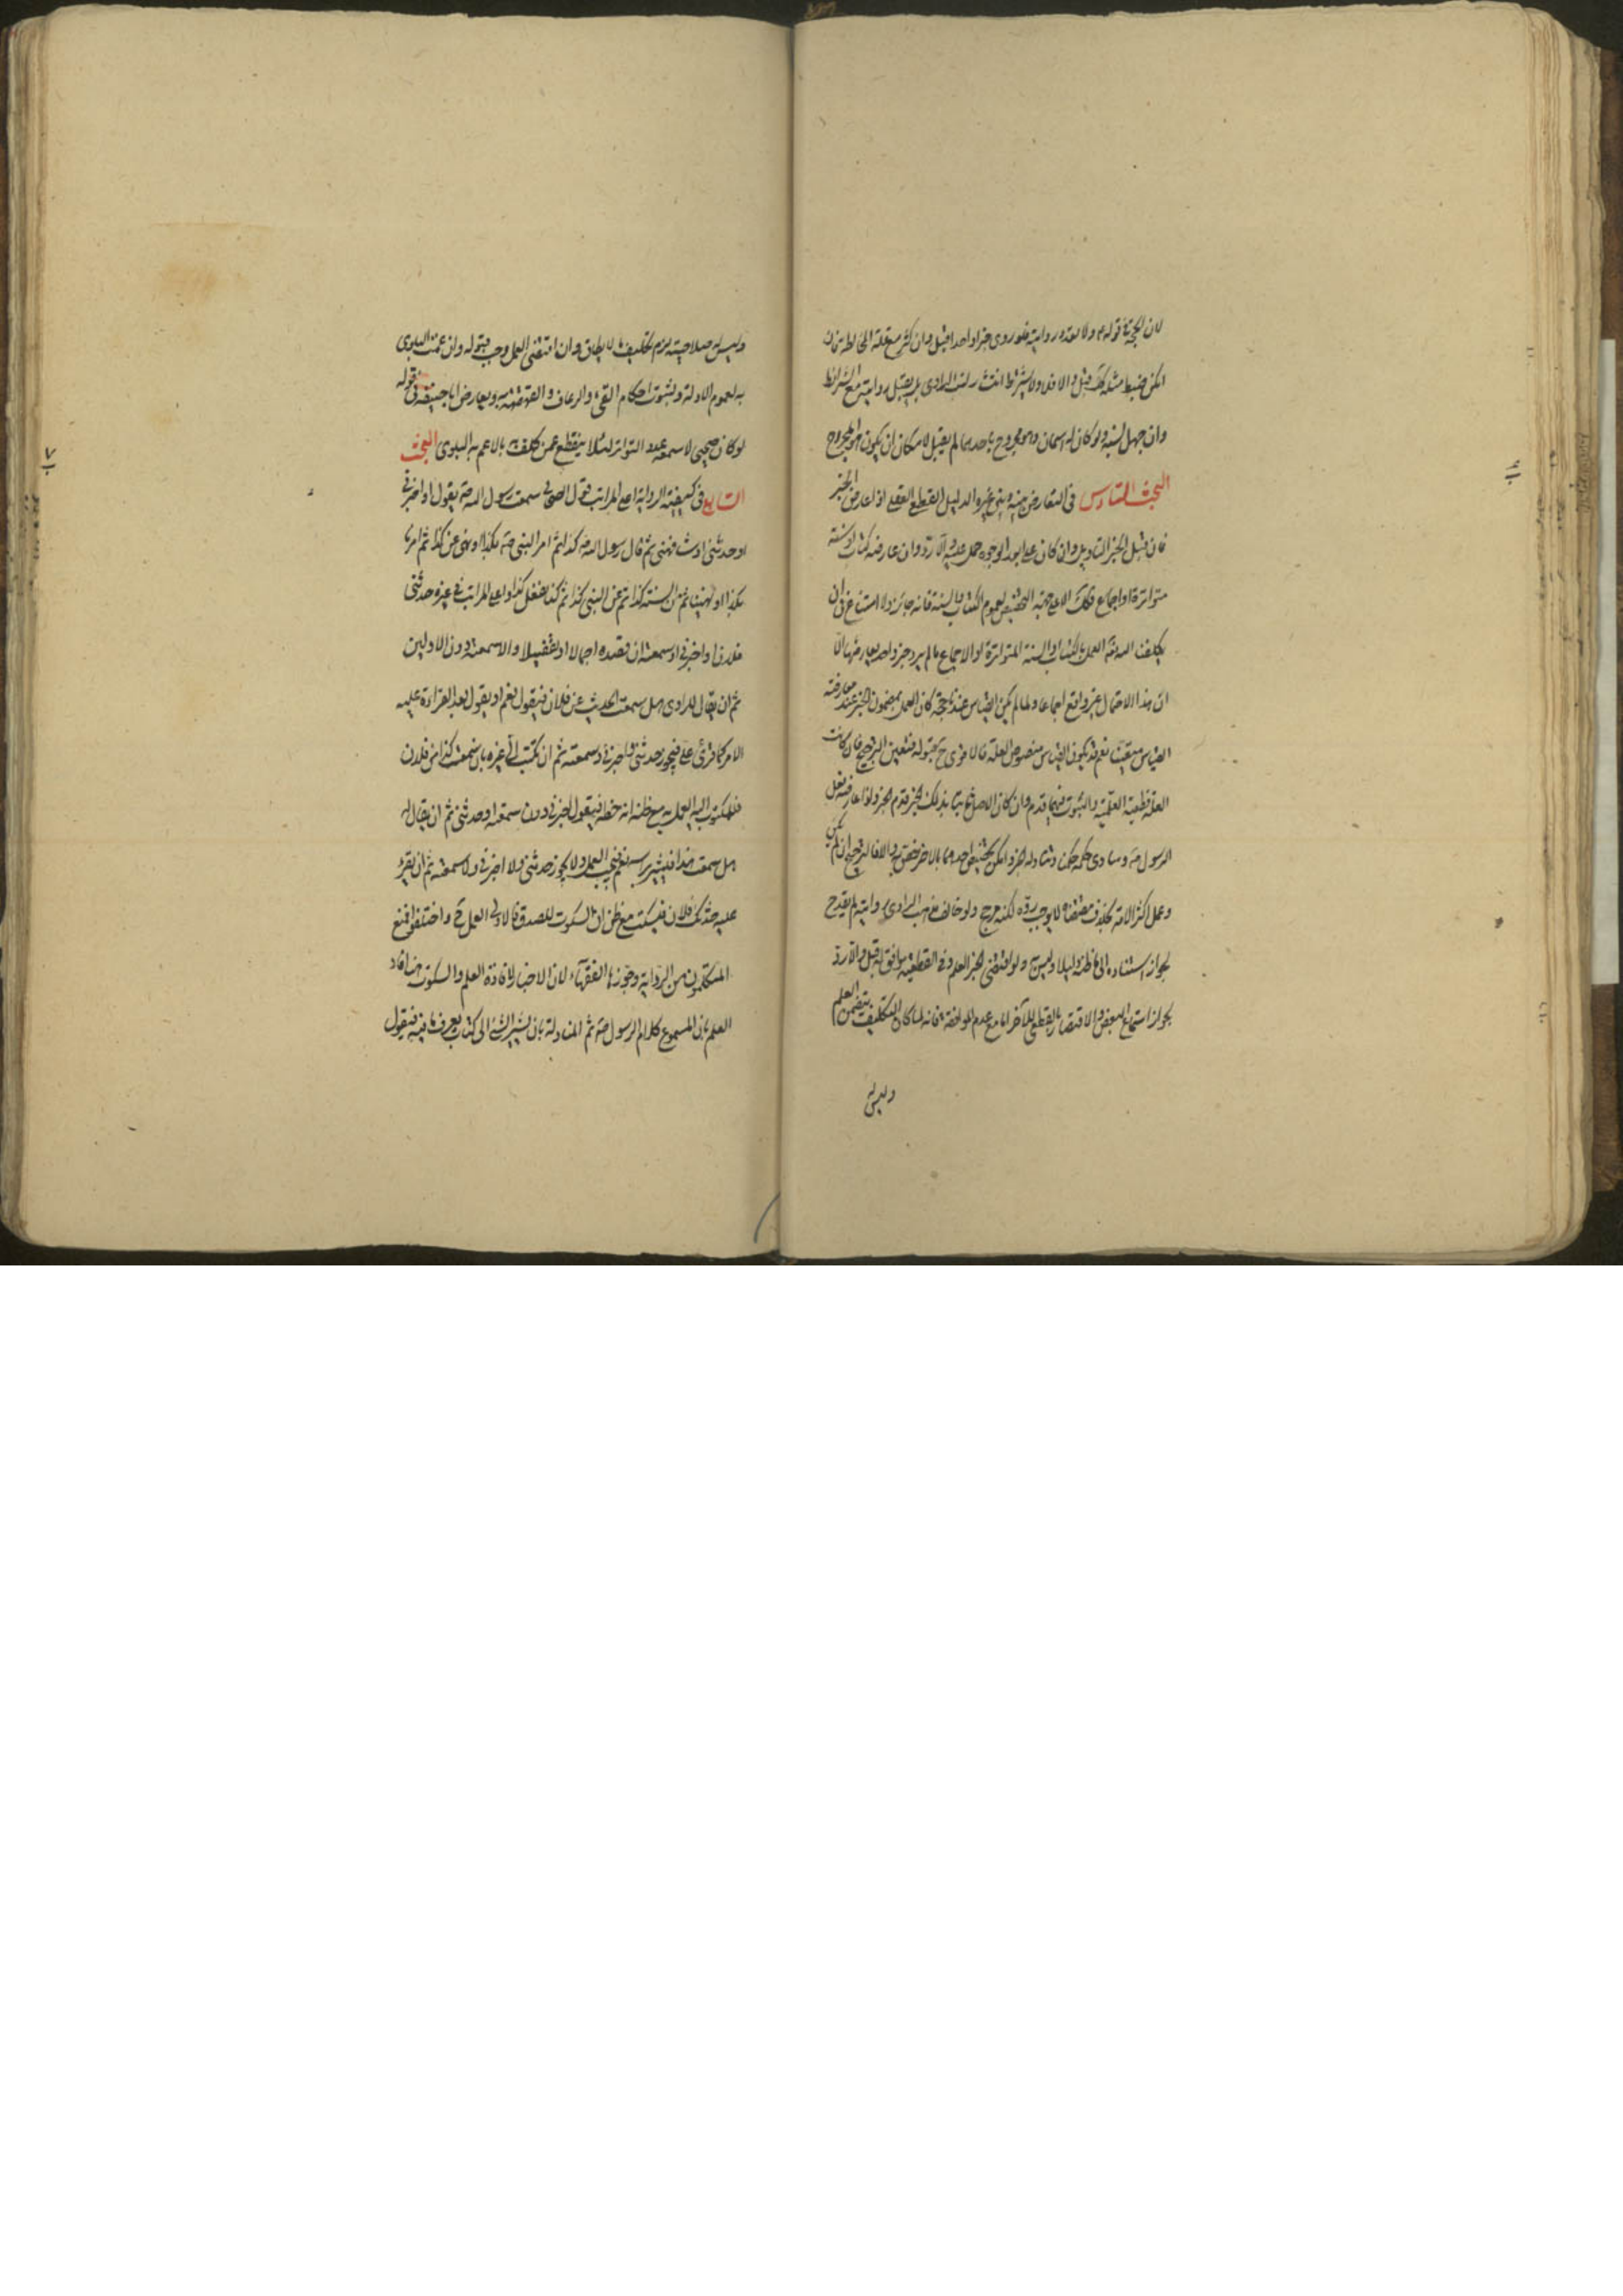 لان الحجة فى قوله م ولا تعدد روايته فلو روى خبرا واحدا قبل وان كثر مع قلة المخالطة فان
امكن ضبط مثله لك قبل والا فلا ولا يشترط انتشار نسب الراوى بل يقبل روايته مع الشرائط
وان جهل نسبه ولو كان له اسمان وهو مجروح باحدهما لم يقبل لامكان ان يكون هو المجروح
البحث السادس فى التعارض بينه وبين غيره الدليل القطعى العقلى اذا عارض الخبر
فان قبل الخبر التاويل وان كان على ابعد الوجوه حمل عليه والا رد وان عارضه كتاب او سنة
متواترة او اجماع فكك الا على جهة التخصيص لعموم الكتاب والسنة فانه جائز ولا امتناع فى ان
يكلفنا الله تع العمل بالكتاب والسنة المتواترة او الاجماع ما لم يرد خبر واحد يعارضها الا
ان هذا الاحتمال غير واقع اجماعا ولما لم يكن القياس عندنا حجة كان العمل بمضمون الخبر عند معارضة
القياس متعينا نعم قد يكون القياس منصوص العلة فالاقوى ح قبوله فتعين الترجيح فان كانت
العلة قطعية العلية والثبوت فيهما قدم وان كان الاصل ثابتا بذلك الخبر قدم الخبر ولو عارضه فعل
الرسول ص وساوى حكمه حكمنا وتناوله الخبر وامكن تخصيص احدهما بالاخر خصص والا فالترجيح ان لم يكن
وعمل اكثر الامة بخلاف مقتضاه لا يوجب رده لكنه مرجح ولو خالف مذهب الراوى روايته لم يقدح
لجواز استناده الى ما ظنه دليلا وليس ولو اقتضى الخبر العلم وفى القطعية ما يوافق له قبل والا رد
لجواز استماع البعض والاقتصار بالقطعى للآخر اما مع عدم الموافقة فانه لما كان التكليف يتضمن العلم
وليس له
وليس له صلاحيته لزم تكليف ما لا يطاق وان اقتضى العمل وجب قبوله وان عمت البلوى
به لعموم الادلة ولثبوت احكام القىء والرعاف والقهقهة به ويعارض ابا حنيفة فى قوله
لو كان صحيحا لاسمعه عدد التواتر لئلا ينقطع عمن كلف به بالاعم به البلوى البحث
السابع فى كيفية الرواية اعلى المراتب قول الصحابى سمعت رسول الله ص يقول او اخبرنى
او حدثنى او شافهنى ثم قال رسول الله ص كذا ثم امر النبى ص بكذا او نهى عن كذا ثم امرنا
بكذا او نهينا ثم من السنة كذا ثم عن النبى كذا ثم كنا نفعل كذا واعلى المراتب فى غيره حدثنى
فلان او اخبرنى او سمعته ان قصده اجمالا او تفصيلا والا سمعته دون الاولين
ثم ان يقال للراوى هل سمعت الحديث عن فلان فيقول نعم او يقول بعد القراءة عليه
الامر كما قرئ على فيجوز حدثنى واخبرنى وسمعته ثم ان يكتب الى غيره بانى سمعت كذا من فلان
فللمكتوب اليه العمل به مع ظنه انه خطه فيقول اخبرنى دون سمعته او حدثنى ثم ان يقال له
هل سمعت هذا فيشير براسه نعم فيجب العمل ولا يجوز حدثنى ولا اخبرنى ولا سمعته ثم ان يقرئ
عليه حدثك فلان فيسكت مع ظن ان السكوت للصدق كالاولى العمل ح واختلفوا فمنع
المتكلمون من الرواية وجوزها الفقهاء لان الاخبار لافادة العلم والسكوت هنا افاد
العلم بان المسموع كلام الرسول ص ثم المناولة بان يشير الشيخ الى كتاب يعرف ما فيه فيقول
٧